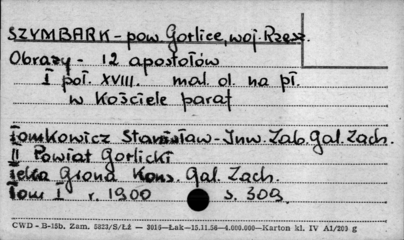 SZYMBARK - pow. Gorlice, woj. Rzesz.
Obrazy - 12 apostołów
I poł. XVIII. mal. ol. na pł.
w Kościele paraf
Tomkowicz Stanisław - Inw. Zab. Gal. Zach.
II Powiat Gorlicki
Teka Grona Kons. Gal. Zach.
Tom I r. 1900 s. 309.
CWD - B-15b. Zam. 5823/S/Łż — 3016 — Łak — 15.11.56 — 4.000.000 — Karton kl. IV A1/200 g